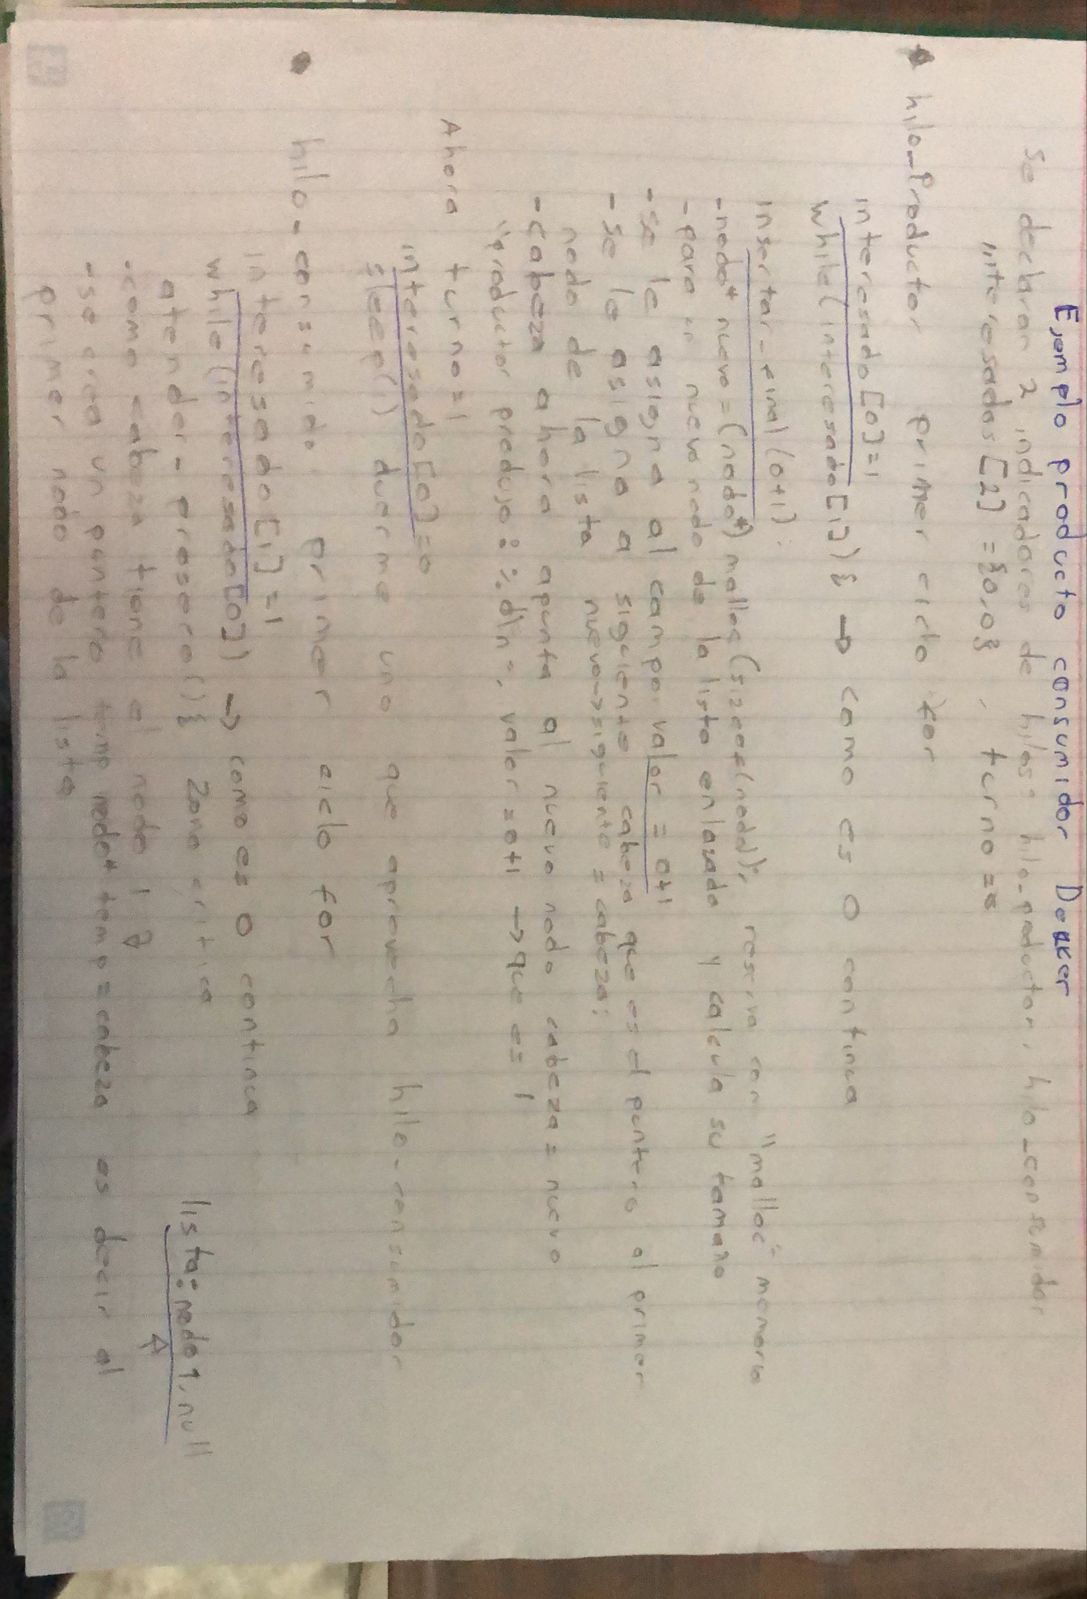 Ejemplo producto consumidor Dekker
Se declaran 2 indicadores de hilos: hilo_productor, hilo_consumidor
interesados[2] = {0,0} , turno = 0
• hilo_Productor primer ciclo for
interesado[0]=1
while(interesado[1]){ → como es 0 continua
insertar_final(0+1);
-nodo* nuevo=(nodo*) malloc(sizeof(nodo)); reserva con "malloc" memoria
-para un nuevo nodo de la lista enlazada y calcula su tamaño
-se le asigna al campo valor = 0+1
-se le asigna a siguiente cabeza que es el puntero al primer
nodo de la lista nuevo→siguiente = cabeza;
-cabeza ahora apunta al nuevo nodo cabeza = nuevo
"productor produjo: %d\n", valor = 0+1 → que es 1
Ahora turno=1
interesado[0]=0
sleep(1) duerme uno que aprovecha hilo-consumidor
• hilo-consumido. primer ciclo for
interesado[1]=1
while(interesado[0]) → como es 0 continua
atender-prosero(){ Zona critica
-como cabeza tiene el nodo 1 lista: nodo1, null
-se crea un puntero temp nodo* temp = cabeza es decir al
primer nodo de la lista